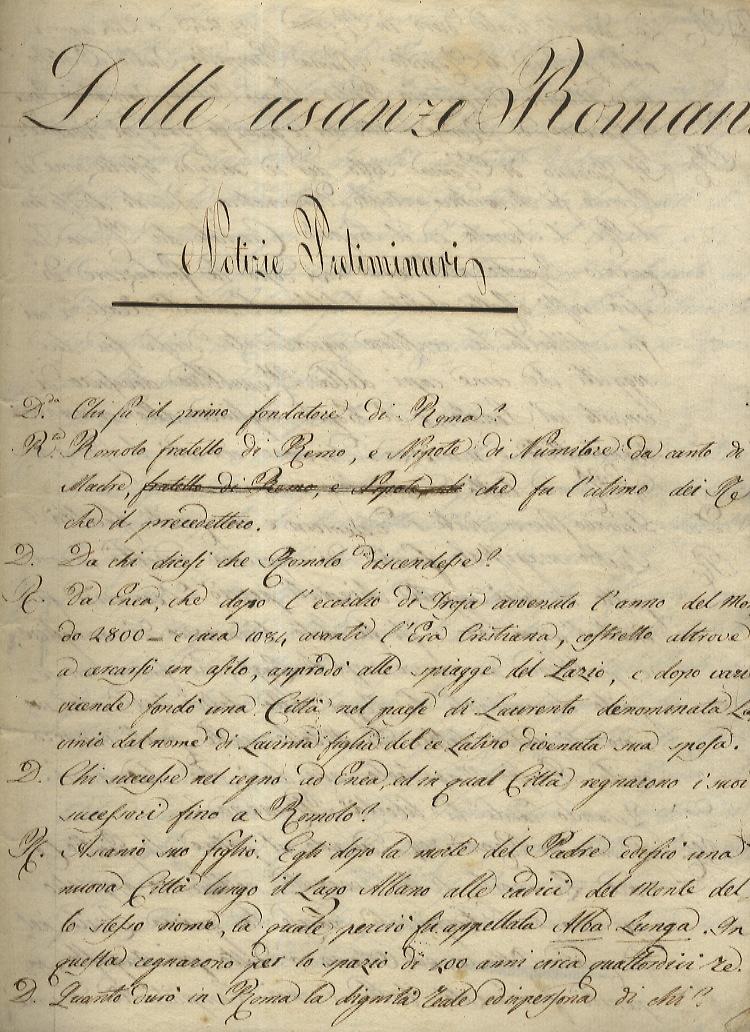 Delle usanze Roman
Notizie Preliminari
D.da Chi fù il primo fondatore di Roma?
R.ta Romolo fratello di Remo, e Nipote di Numitore da canto di
Madre, fratello di Remo, e Nipote di che fu l'ultimo dei Re
che il precedettero.
D. Da chi dicesi che Romolo discendesse?
R. Da Enea, che dopo l'eccidio di Troja avvenuto l'anno del Mon
do 2800 – e circa 1084 avanti l'Era Cristiana, costretto altrove
a cercarsi un asilo, approdò alle spiagge del Lazio, e dopo varie
vicende fondò una Città nel paese di Laurento denominata La
vinio dal nome di Lavinia figlia del re Latino divenuta sua sposa.
D. Chi successe nel regno ad Enea, ed in qual Città regnarono i suoi
successori fino a Romolo?
R. Ascanio suo figlio. Egli dopo la morte del Padre edificò una
nuova Città lungo il Lago Albano alle radici del Monte del
lo stesso nome, la quale perciò fu appellata Alba Lunga. In
questa regnarono per lo spazio di 400 anni circa quattordici re.
D. Quanto durò in Roma la dignità reale ed in persona di chi?